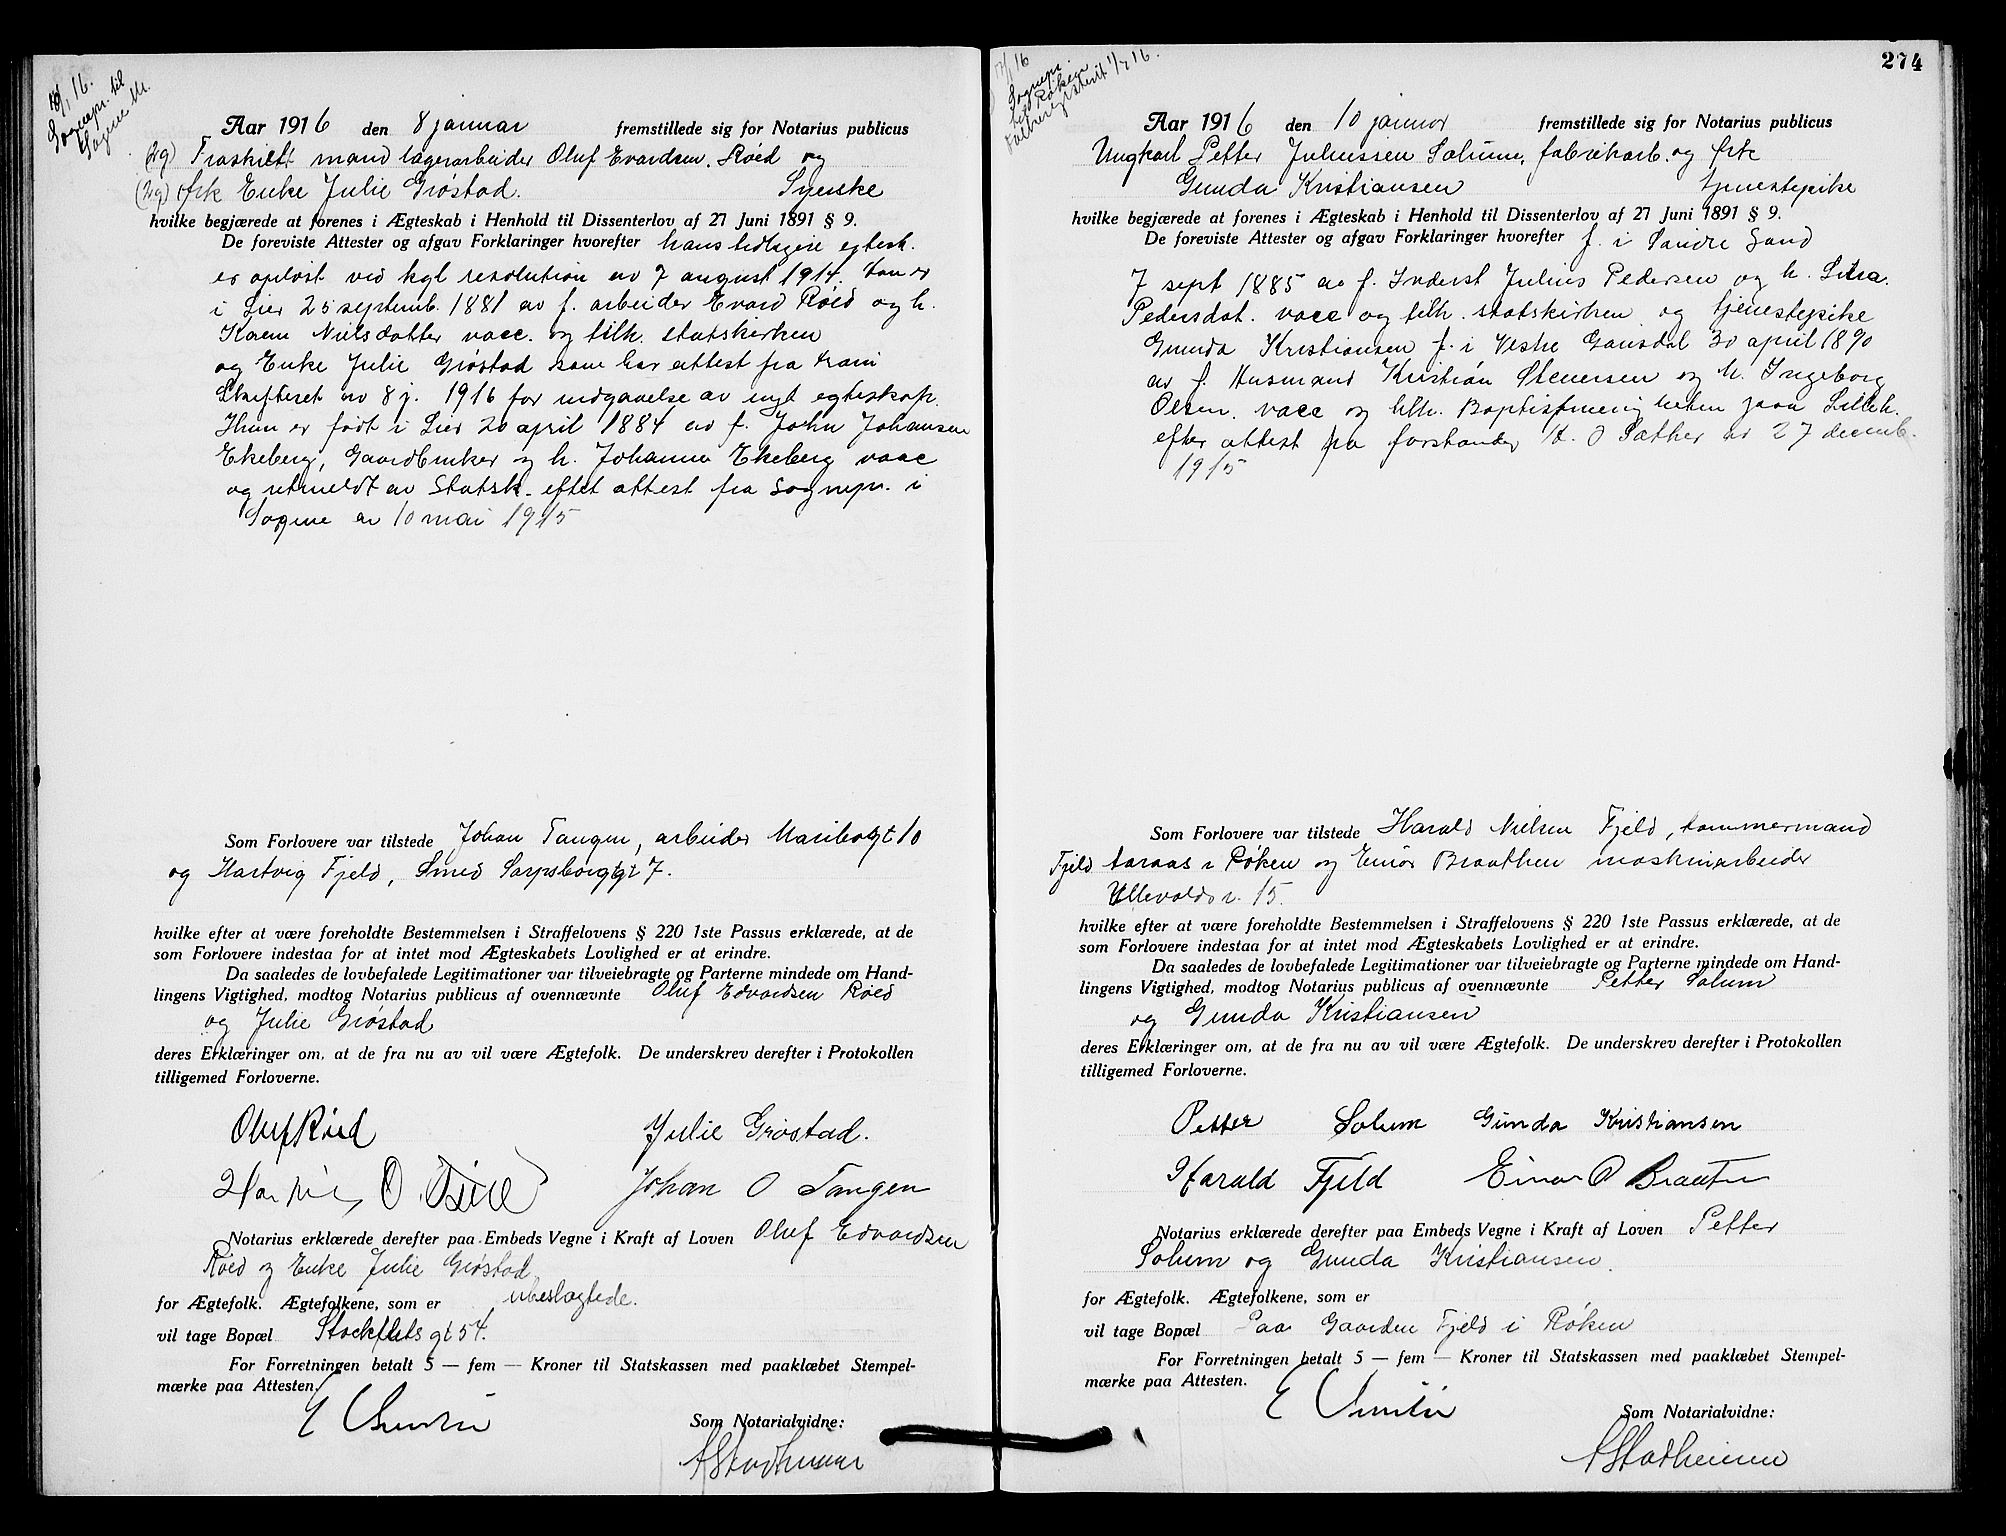 /1 16.
Sognepr. til
Sagene M.
Aar 1916 den 8 januar fremstillede sig for Notarius publicus
(2g) Fraskilt mand lagerarbeider Oluf Evardsen. Røed og
(2g) frk Enke Julie Grøstad. Syerske
hvilke begjærede at forenes i Ægteskab i Henhold til Dissenterlov af 27 Juni 1891 § 9.
De foreviste Attester og afgav Forklaringer hvorefter hans tidligere egtesk.
er opløst ved kgl resolution av 7 august 1914. han er
i Lier 25 septemb. 1881 av f. arbeider Evard Røed og h.
Karen Nilsdatter vacc. og tilh. statskirken
og Enke Julie Grøstad som har attest fra
Skifteret av 8 j. 1916 for indgaaelse av nyt egteskap.
Hun er født i Lier 20 april 1884 av f. John Johansen
Ekeberg, Gaardbruker og h. Johanne Ekeberg vacc
og utmeldt av Statsk. efter attest fra Sognepr. i
Sagene av 10 mai 1915
Som Forlovere var tilstede Johan Tangen, arbeider Maribogt 10
og Hartvig Fjeld, Smed Sarpsborggt 7.
hvilke efter at være foreholdte Bestemmelsen i Straffelovens § 220 1ste Passus erklærede, at de
som Forlovere indestaa for at intet mod Ægteskabets Lovlighed er at erindre.
Da saaledes de lovbefalede Legitimationer var tilveiebragte og Parterne mindede om Hand-
lingens Vigtighed, modtog Notarius publicus af ovennævnte Oluf Edvardsen Røed
og Julie Grøstad
deres Erklæringer om, at de fra nu av vil være Ægtefolk. De underskrev derefter i Protokollen
tilligemed Forloverne.
Oluf Røed Julie Grøstad.
Hartvig O. Fjeld Johan O Tangen
Notarius erklærede derefter paa Embeds Vegne i Kraft af Loven Oluf Edvardsen
Røed og Enke Julie Grøstad
for Ægtefolk. Ægtefolkene, som er ubeslægtede.
vil tage Bopæl Stockflets gt 54.
For Forretningen betalt 5 — fem — Kroner til Statskassen med paaklæbet Stempel-
mærke paa Attesten.
Som Notarialvidne:
AStadheim
274
/1 16
Sognepr.
Røken
1/7 16.
Aar 1916 den 10 januar fremstillede sig for Notarius publicus
Ungkarl Petter Juliussen Solum, fabrikarb. og frk
Gunda Kristiansen tjenestepike
hvilke begjærede at forenes i Ægteskab i Henhold til Dissenterlov af 27 Juni 1891 § 9.
De foreviste Attester og afgav Forklaringer hvorefter f. i Søndre Sand
7 sept 1885 av f. Inderst Julius Pedersen og h. Lina
Pedersdat. vacc og tilh. statskirken og tjenestepike
Gunda Kristiansen f. i Vestre Gausdal 30 april 1890
av f. Husmand Kristian Stenersen og h. Ingeborg
Olsen. vacc og tilh. Baptistmenigheten paa Lilleh.
efter attest fra forstander O Sæther av 27 decemb.
1915
Som Forlovere var tilstede Harald Nielsen Fjeld, tømmermand
Fjeld Aaraas i Røken og Einar Braathen maskinarbeider
Ullevoldsv. 15.
hvilke efter at være foreholdte Bestemmelsen i Straffelovens § 220 1ste Passus erklærede, at de
som Forlovere indestaa for at intet mod Ægteskabets Lovlighed er at erindre.
Da saaledes de lovbefalede Legitimationer var tilveiebragte og Parterne mindede om Hand-
lingens Vigtighed, modtog Notarius publicus af ovennævnte Petter Solum
og Gunda Kristiansen
deres Erklæringer om, at de fra nu av vil være Ægtefolk. De underskrev derefter i Protokollen
tilligemed Forloverne.
Petter Solum Gunda Kristiansen
Harald Fjeld Einar O Braaten
Notarius erklærede derefter paa Embeds Vegne i Kraft af Loven Petter
Solum og Gunda Kristiansen.
for Ægtefolk. Ægtefolkene, som er
vil tage Bopæl Paa Gaarden Fjeld i Røken
For Forretningen betalt 5 — fem — Kroner til Statskassen med paaklæbet Stempel-
mærke paa Attesten.
Som Notarialvidne:
AStadheim